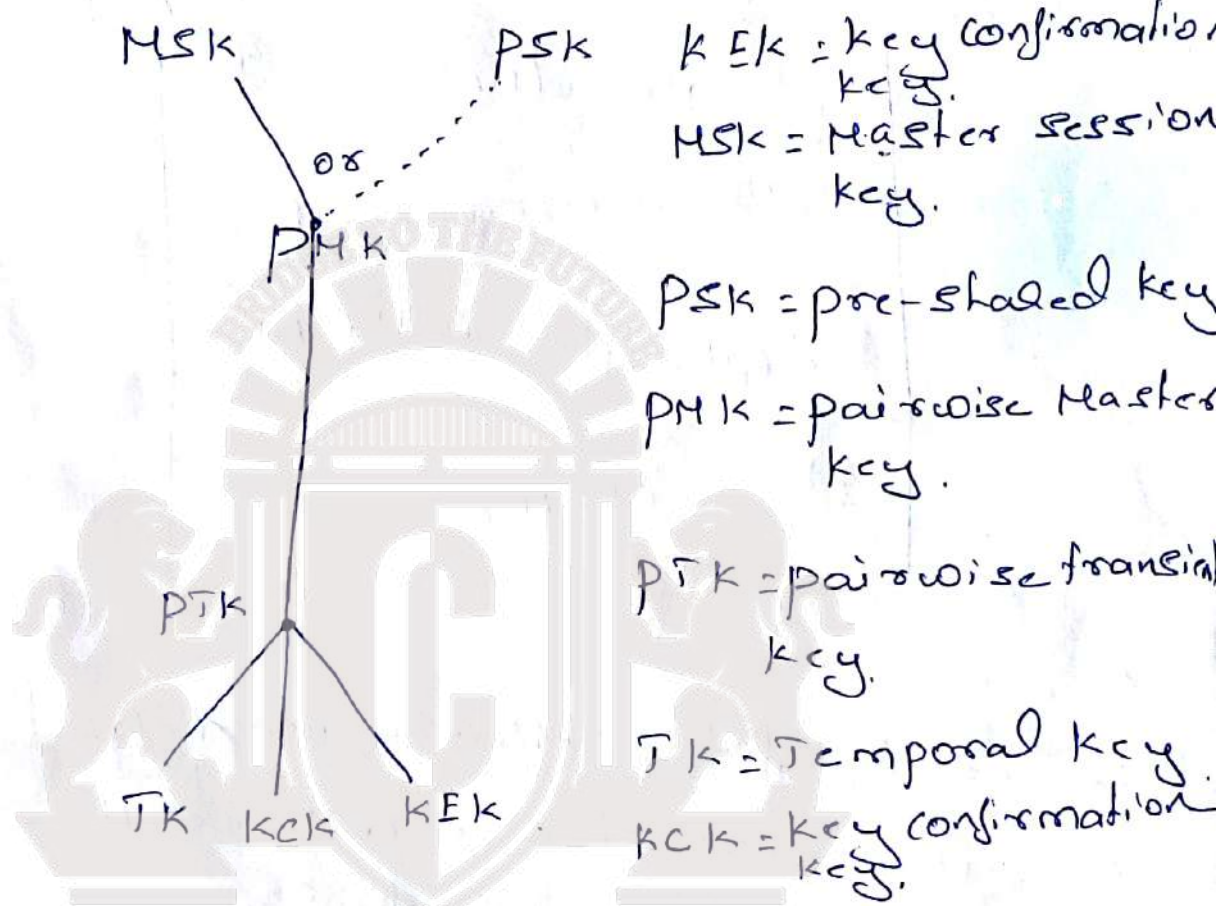 MSK
PSK
or
PMK
PTK
TK KCK KEK
KEK = key confirmation
key.
MSK = Master session
key.
PSK = pre-shared key
PMK = pairwise Master
key.
PTK = pairwise transient
key.
TK = Temporal key.
KCK = key confirmation
key.
BRIDGE TO THE FUTURE